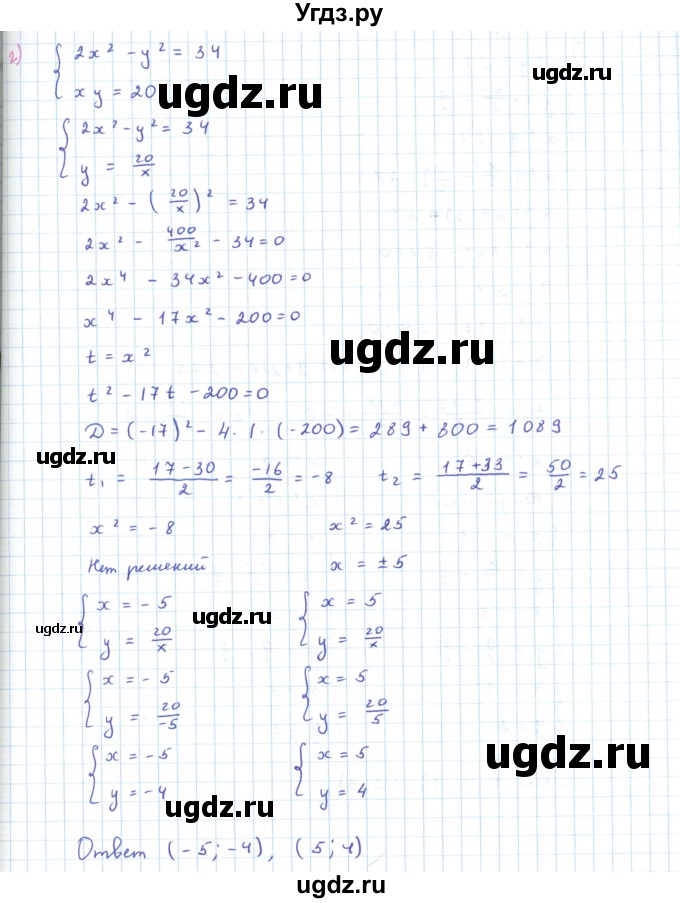 Угдз.ру
г) { 2x² - y² = 34
xy = 20
ugdz.ru
ugdz.ru
{ 2x² - y² = 34
y = 20/x
2x² - (20/x)² = 34
2x² - 400/x² - 34 = 0
2x⁴ - 34x² - 400 = 0
x⁴ - 17x² - 200 = 0
ugdz.ru
t = x²
t² - 17t - 200 = 0
D = (-17)² - 4 · 1 · (-200) = 289 + 800 = 1089
ugdz.ru
t₁ = (17 - 30)/2 = -16/2 = -8 t₂ = (17 + 33)/2 = 50/2 = 25
x² = -8 x² = 25
Нет решений x = ±5
{ x = -5 { x = 5
ugdz.ru
ugdz.ru
y = 20/x y = 20/x
{ x = -5 { x = 5
y = 20/-5 y = 20/5
ugdz.ru
{ x = -5 { x = 5
y = -4 y = 4
ugdz.ru
Ответ (-5; -4), (5; 4)
ugdz.ru